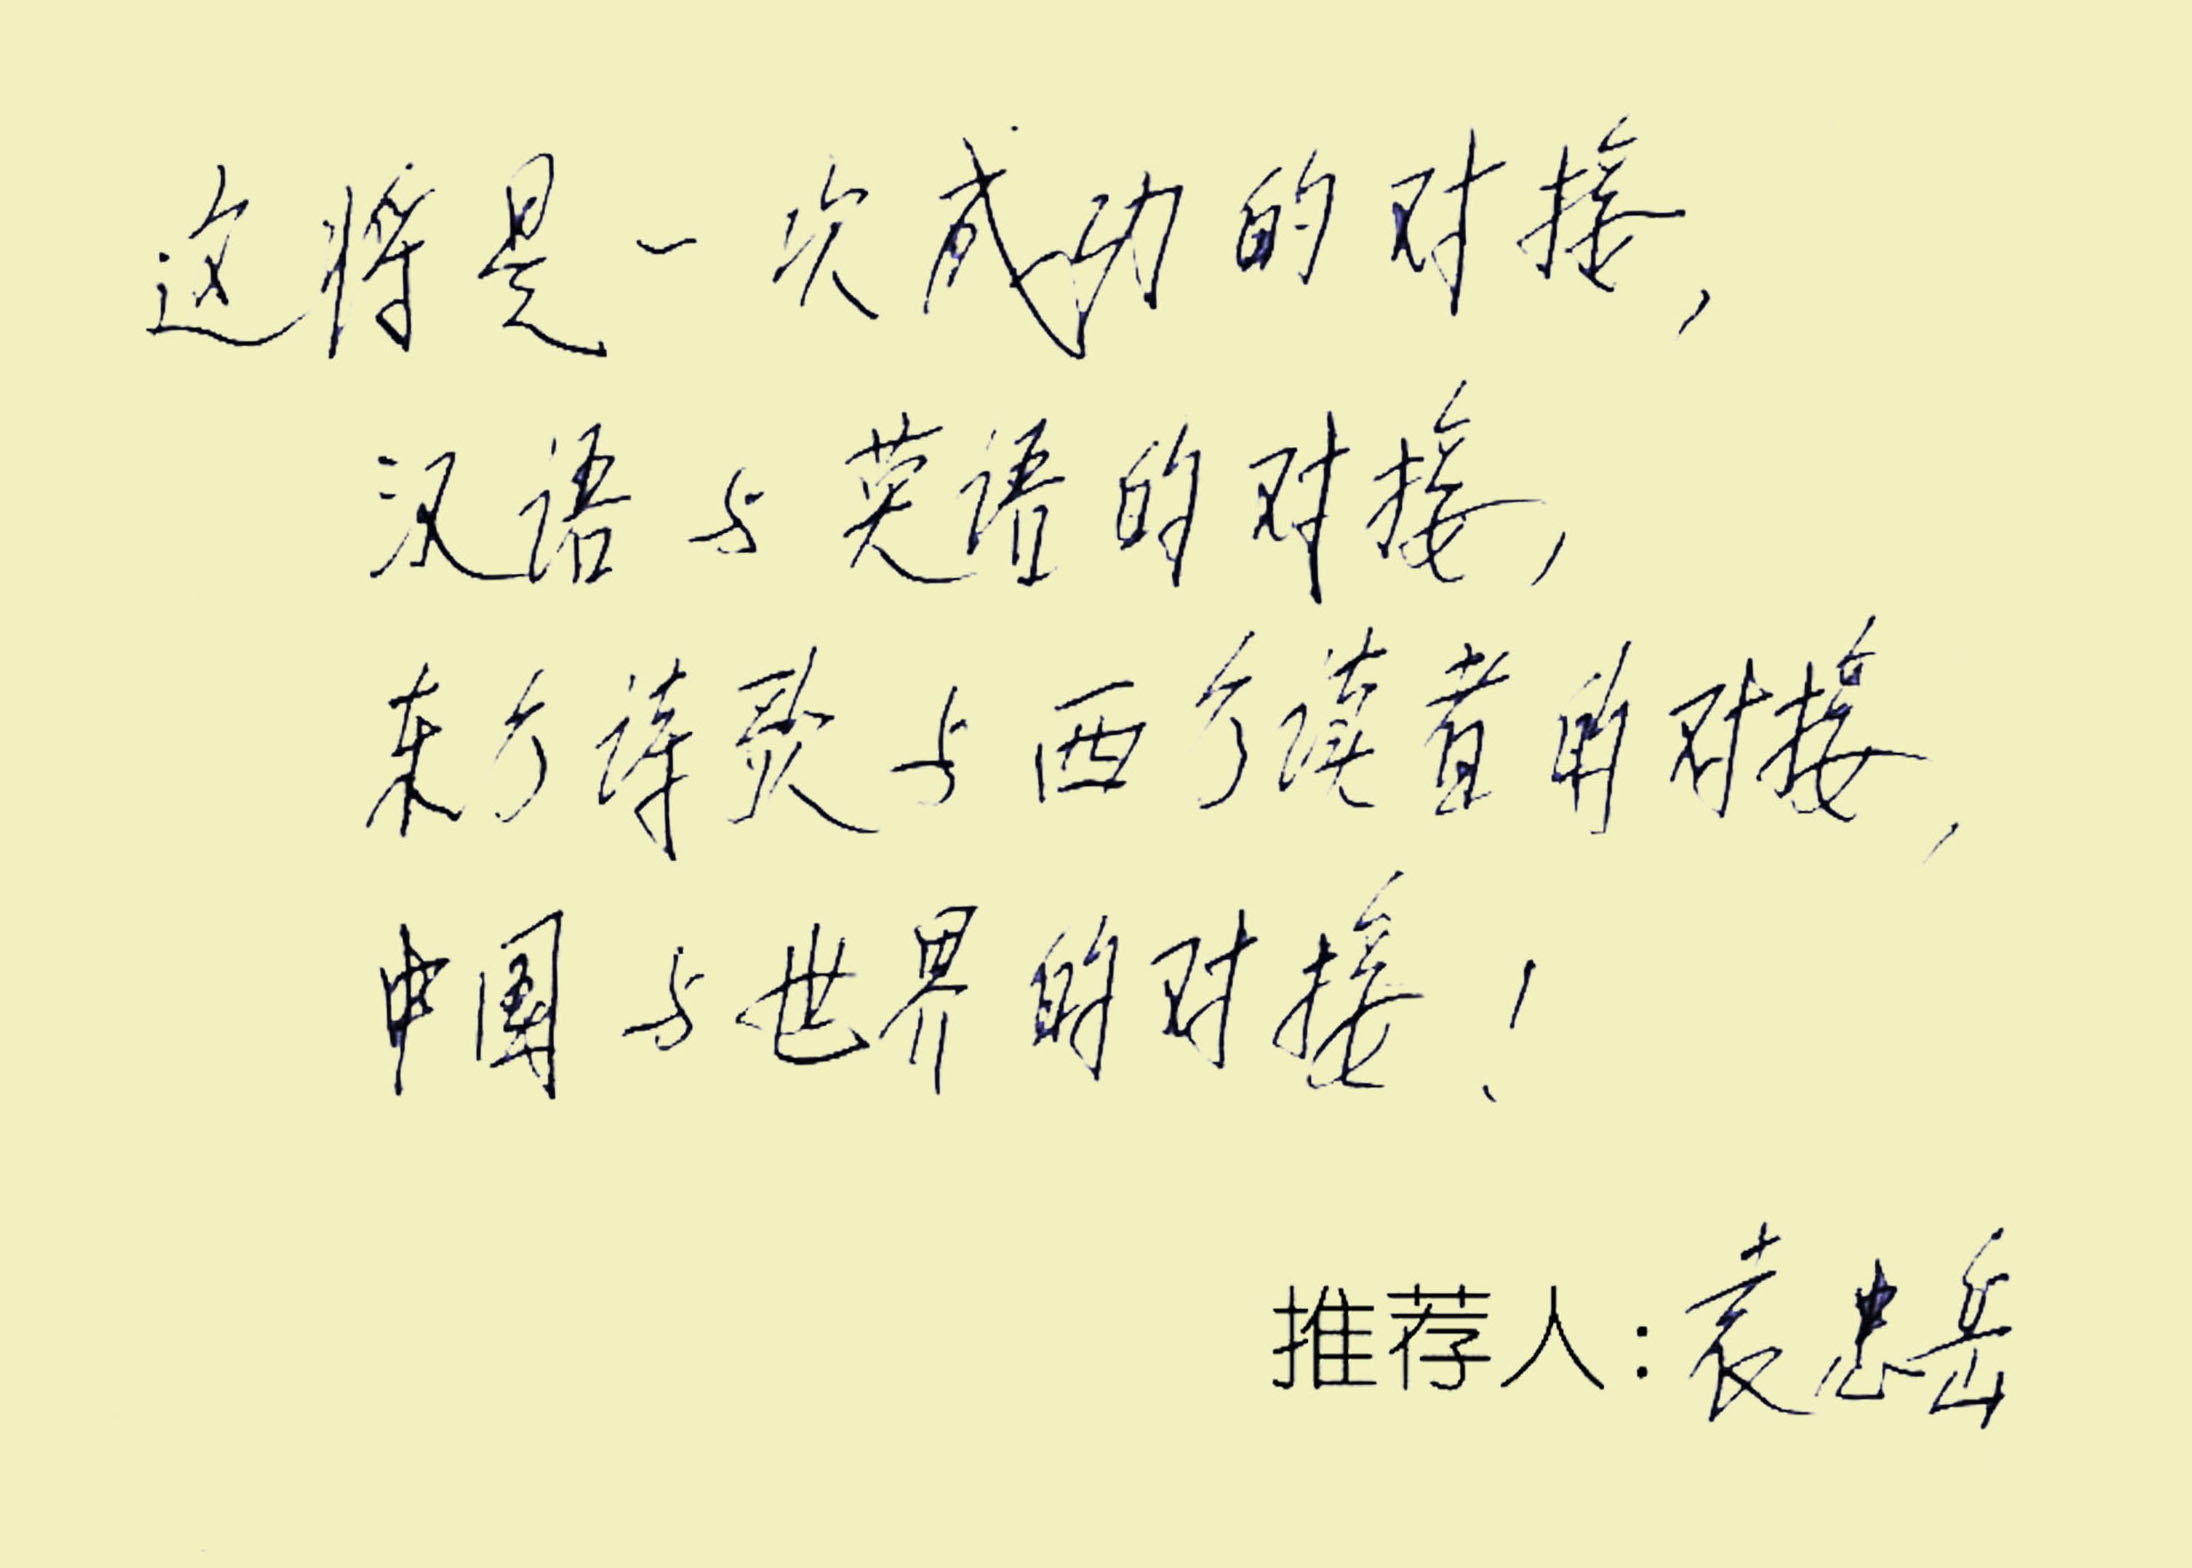 这将是一次成功的对接,
汉语与英语的对接,
东方诗歌与西方读者的对接,
中国与世界的对接!
推荐人:袁忠岳